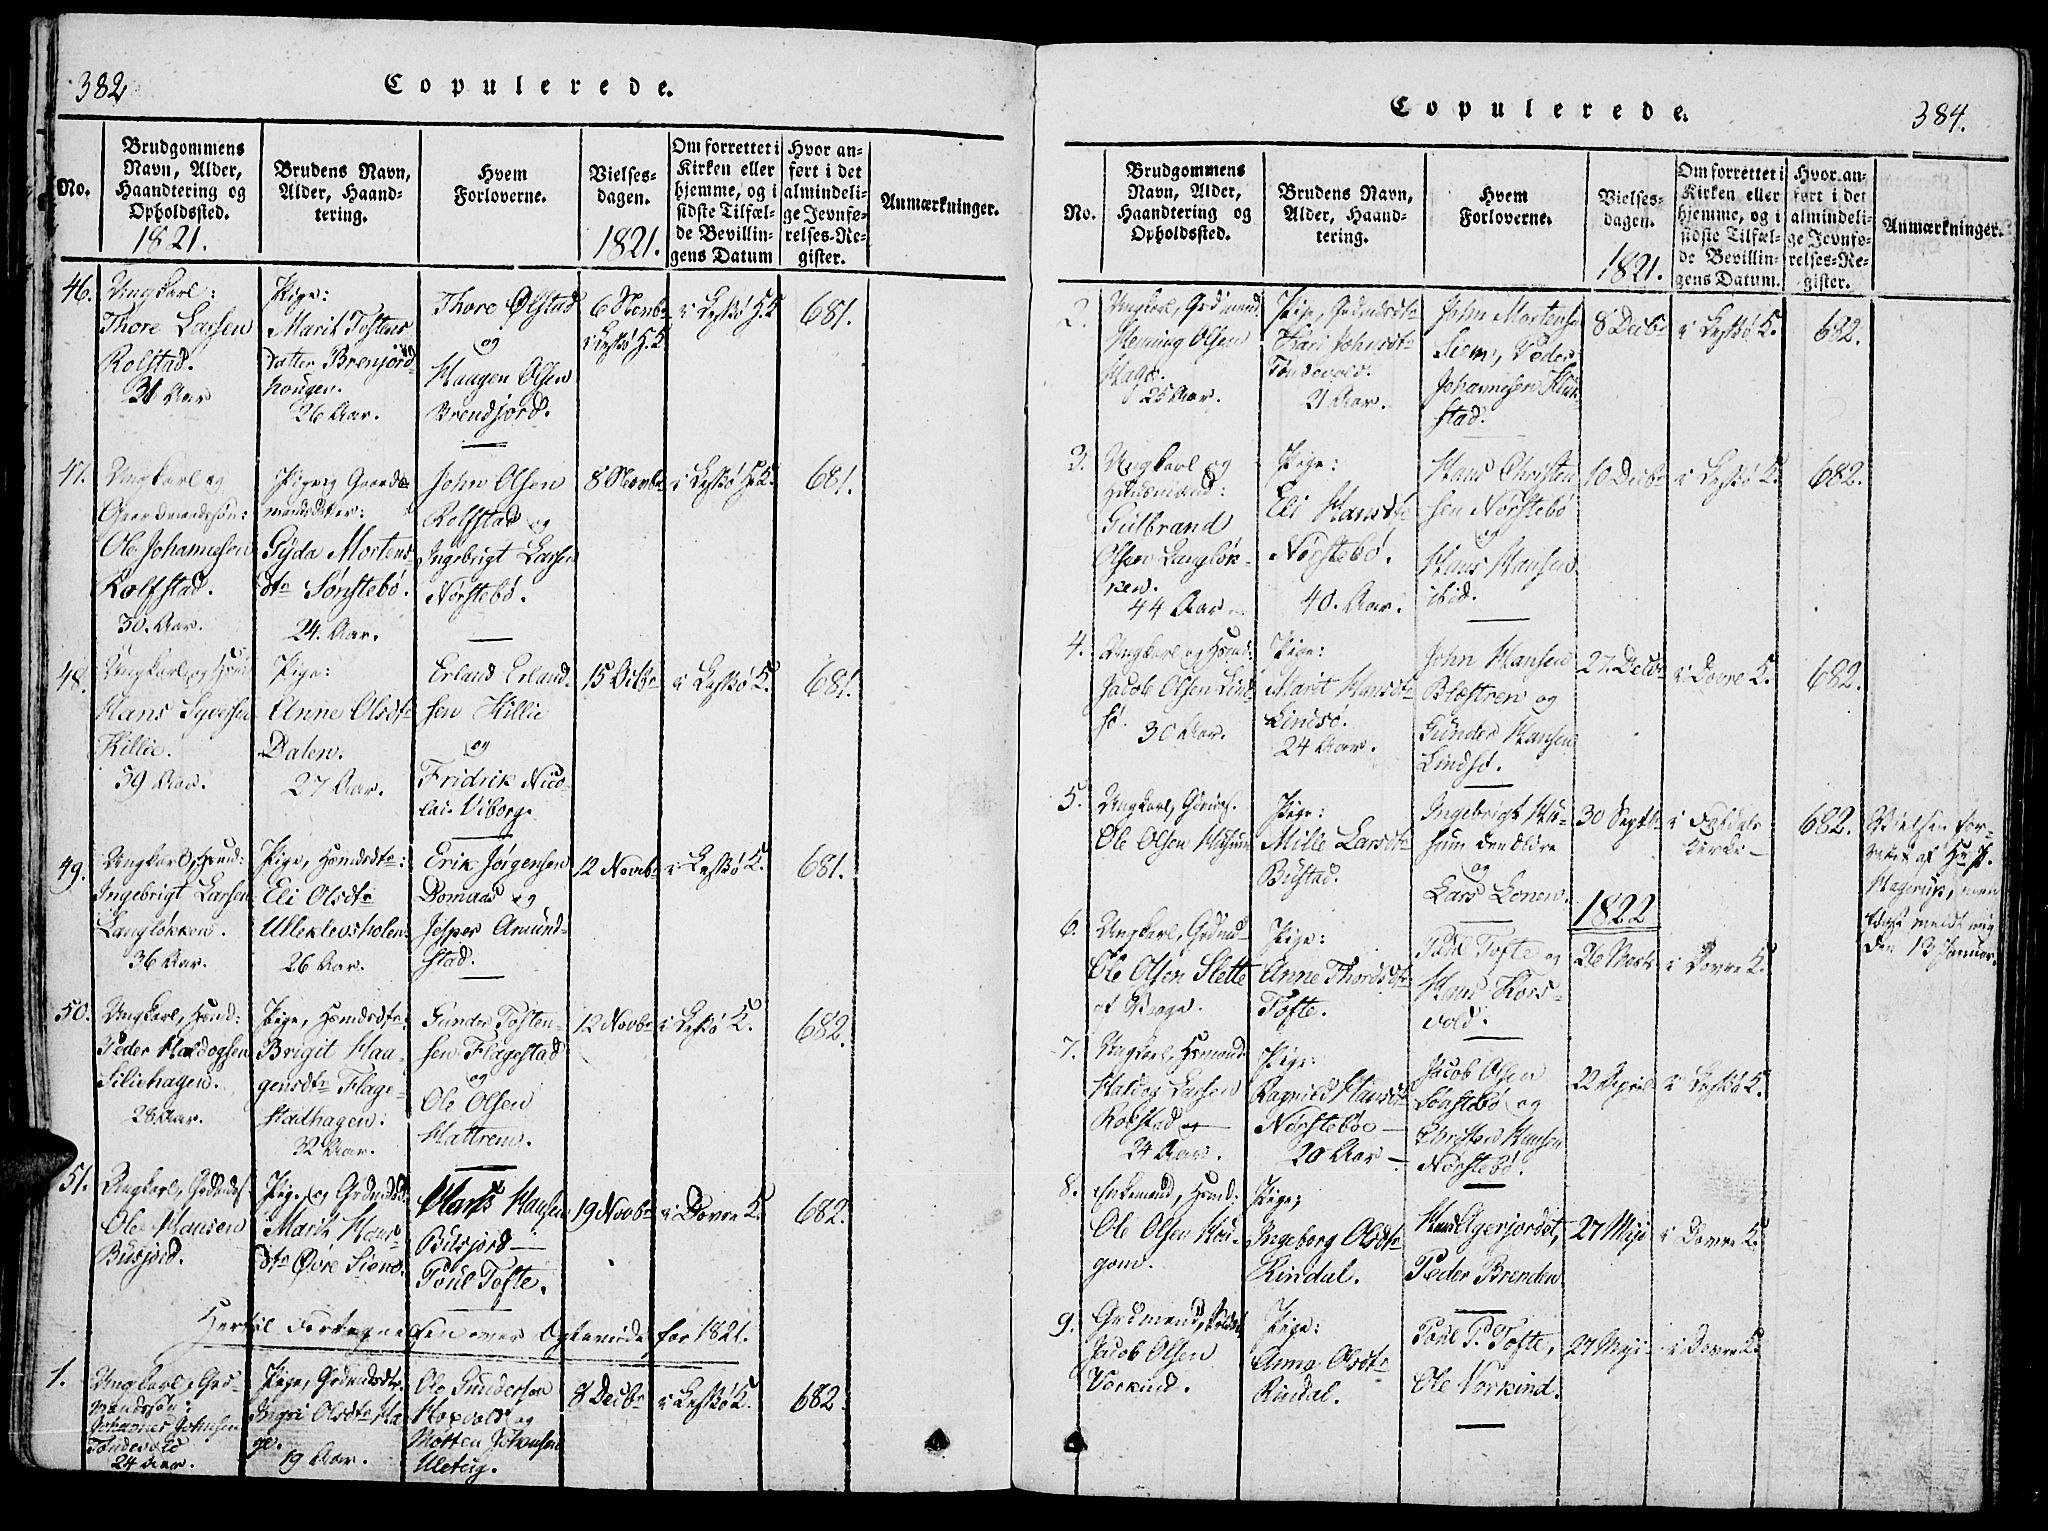 382
Copulerede.
No.
Brudgommens
Navn, Alder,
Haandtering og
Opholdssted.
1821.
Brudens Navn,
Alder, Haand-
tering.
Hvem
Forloverne.
Vielses-
dagen.
1821.
Om forrettet i
Kirken eller
hjemme, og i
sidste Tilfæl-
de Bevillin-
gens Datum
Hvor an-
ført i det
almindeli-
ge Jevnfø-
relses-Re-
gister.
Anmærkninger.
46.
Ungkarl:
Thore Larsen
Rolstad.
31 Aar
Pige:
Marit Tostens
datter Brenjord
hougen.
26 Aar.
Thore Ølstad
og
Haagen Olsen
Brendjord.
6 Novbr
i Leskø H.K.
i Leskø H.K
681.
47.
Ungkarl og
Gaardmandssøn:
Ole Johannesen
Rolfstad.
30. Aar.
Pige og Gaard-
mandsdatter:
Gyda Mortens
dtr Sønstebø.
24. Aar.
John Olsen
Rolfstad og
Ingebrigt Larsen
Norstebø.
8 Novbr
i Leskø H.K.
681.
48.
Ungkarl og Hsmd
Hans Syversen
Killie.
59 Aar.
Pige:
Anne Olsdtr
Dalen.
27 Aar.
Erland Erland-
sen Killie
og
Fridrik Nico
lai Viborg.
15 Octbr
i Leskø K.
681.
49.
Ungkarl, Hsmd:
Ingebrigt Larsen
Langløkken.
36 Aar.
Pige, Hsmdsdtr:
Eli Olsdtr
Ulleklevsholen
26 Aar.
Erik Jørgensen
Domaas og
Jesper Amund-
stad.
12 Novbr
i Leskø K.
681.
50.
Ungkarl, Hsmd:
Peder Haldogsen
Siliehagen.
28 Aar.
Pige, Hsmdsdtr:
Brigit Haa-
gensdtr Flage-
stadhagen:
32 Aar.
Gunder Tosten-
sen Flagestad
og
Ole Olsen
Hattrem.
12 Novbr
i Leskø K.
682.
51.
Ungkarl, Grdmds
Ole Hansen
Busjord.
Pige og Grdmdsd.
Marit Hans-
dtr Øvre Siem.
Hans Hansen
Busjord
Poul Tofte.
19 Novbr
i Dovre K.
682.
Hertil Fortegnelsen over Ægteviede for 1821.
1.
Ungkarl, Grd-
mandssøn:
Johannes Johnsen
Tondevold
24 Aar.
Pige, Grdmdsdtr.
Ingri Olsdtr Ha
ge.
19 Aar.
Ole Gundersen
Hoxvold og
Morten Johnsen
8 Decbr
i Leskø K.
682.
Copulerede.
384.
No.
Brudgommens
Navn, Alder,
Haandtering og
Opholdssted.
Brudens Navn,
Alder, Haand-
tering.
Hvem
Forloverne.
Vielses-
dagen.
1821.
Om forrettet i
Kirken eller
hjemme, og i
sidste Tilfæl-
de Bevillin-
gens Datum.
Hvor an-
ført i det
almindeli-
ge Jevnfø-
relses-Re-
gister.
Anmærkninger.
2.
Ungkarl, Grdmand
Fleming Olsen
Hage.
25 Aar.
Pige, Grdmdsdtr
Kari Johnsdtr
Tondevold.
21 Aar.
John Mortens
Siem, Peder
Johannesen Kluk-
stad.
8 Decbr
i Leskø K.
682.
3.
Ungkarl og
Huusmand:
Gulbrand
Olsen Langløk-
ken.
44 Aar
Pige:
Eli Hansdtr
Nørstebø.
40. Aar.
Hans Christen
sen Nørstebø
og
Hans Hansen
ibid.
10 Decbr
i Leskø K.
682.
4.
Ungkarl og Hsmd:
Jacob Olsen Lind-
sø.
30 Aar.
Pige:
Marit Hansdtr
Lindsø.
24 Aar.
John Hansen
Blæstren og
Gunder Hansen
Lindsø.
27 Decbr
i Dovre K.
682.
5.
Ungkarl, Grdmds.
Ole Olsen Husum
Pige:
Mille Larsdtr
Bustad.
Ingebrigt Hu-
sum den ældre
og
Lars Lonen.
30 Septbr
i
Kirke
682.
Vielsen for-
rettet af Hr P.
Hagerup, men
først meldt mig
den 13 Januar.
1822
6.
Ungkarl, Grdmd
Ole Olsen Slette
af Vaage.
Pige:
Anne Thordsdtr
Tofte.
Poul Tofte og
Hans Kors-
vold.
26 Marts
i Dovre K.
7.
Ungkarl, Hsmand
Haldog Larsen
Rolstad
24 Aar.
Pige:
Ragnild Hansdtr
Nørstebøe
20 Aar
Jacob Olsen
Sønstebø og
Christen Hansen
Nørstebø.
22 April
i Leskø K.
8.
Enkemand, Hsmd:
Ole Olsen Hou-
gom.
Pige;
Ingeborg Olsdtr
Rindal.
Hans Agerjordet,
Peder Brenden
27 Maji
i Dovre K.
9.
Grdmand,
Jacob Olsen
Vorkind.
Pige:
Anne Olsdtr
Rindal.
Poul P. Tofte,
Ole Vorkind.
27 Maji
i Dovre K.